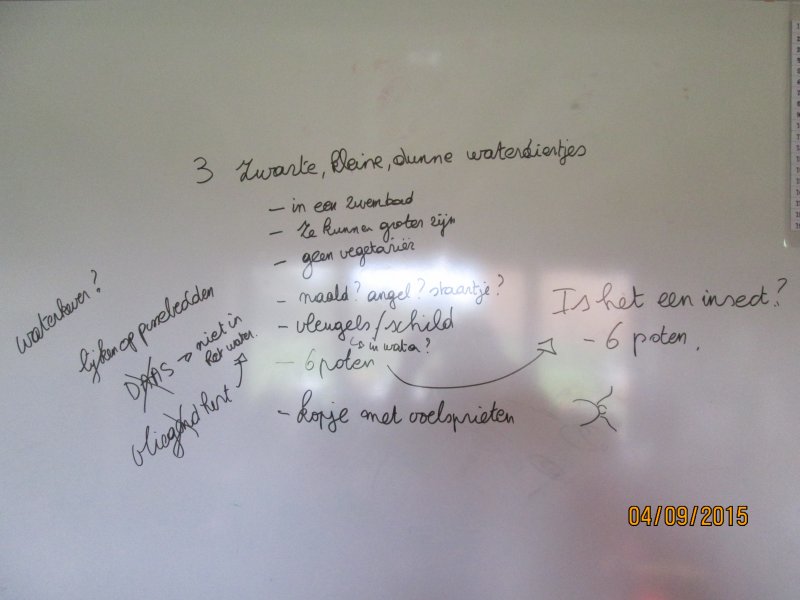 3 zwarte, kleine, dunne waterdiertjes
- in een zwembad
- Ze kunnen groter zijn
- geen vegetariër
- naald? angel? staartje?
- vleugels/schild
↳ in water?
- 6 poten
- kopje met voelsprieten
Is het een insect?
- 6 poten.
waterkever?
lijken op pissebedden
DAAS → niet in
het water.
vliegend hert
04/09/2015